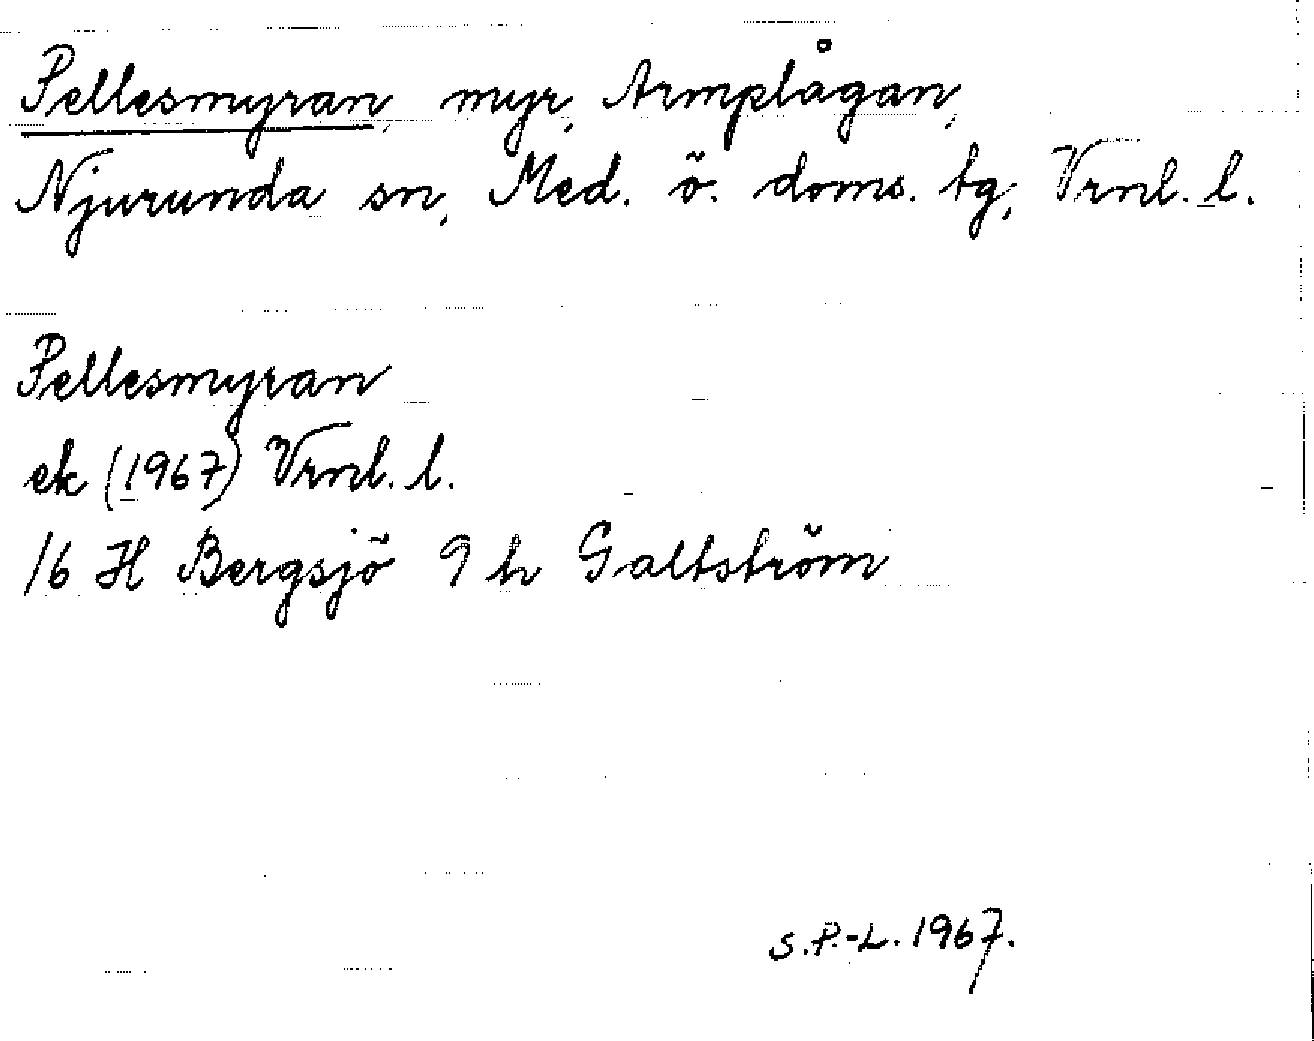 Pellesmyran, myr, Armplågan,
Njurunda sn, Med. ö. doms. tg, Vrnl. l.
Pellesmyran
ek (1967) Vrnl. l.
16 H Bergsjö 9 h Galtström
S.P.-L. 1967.